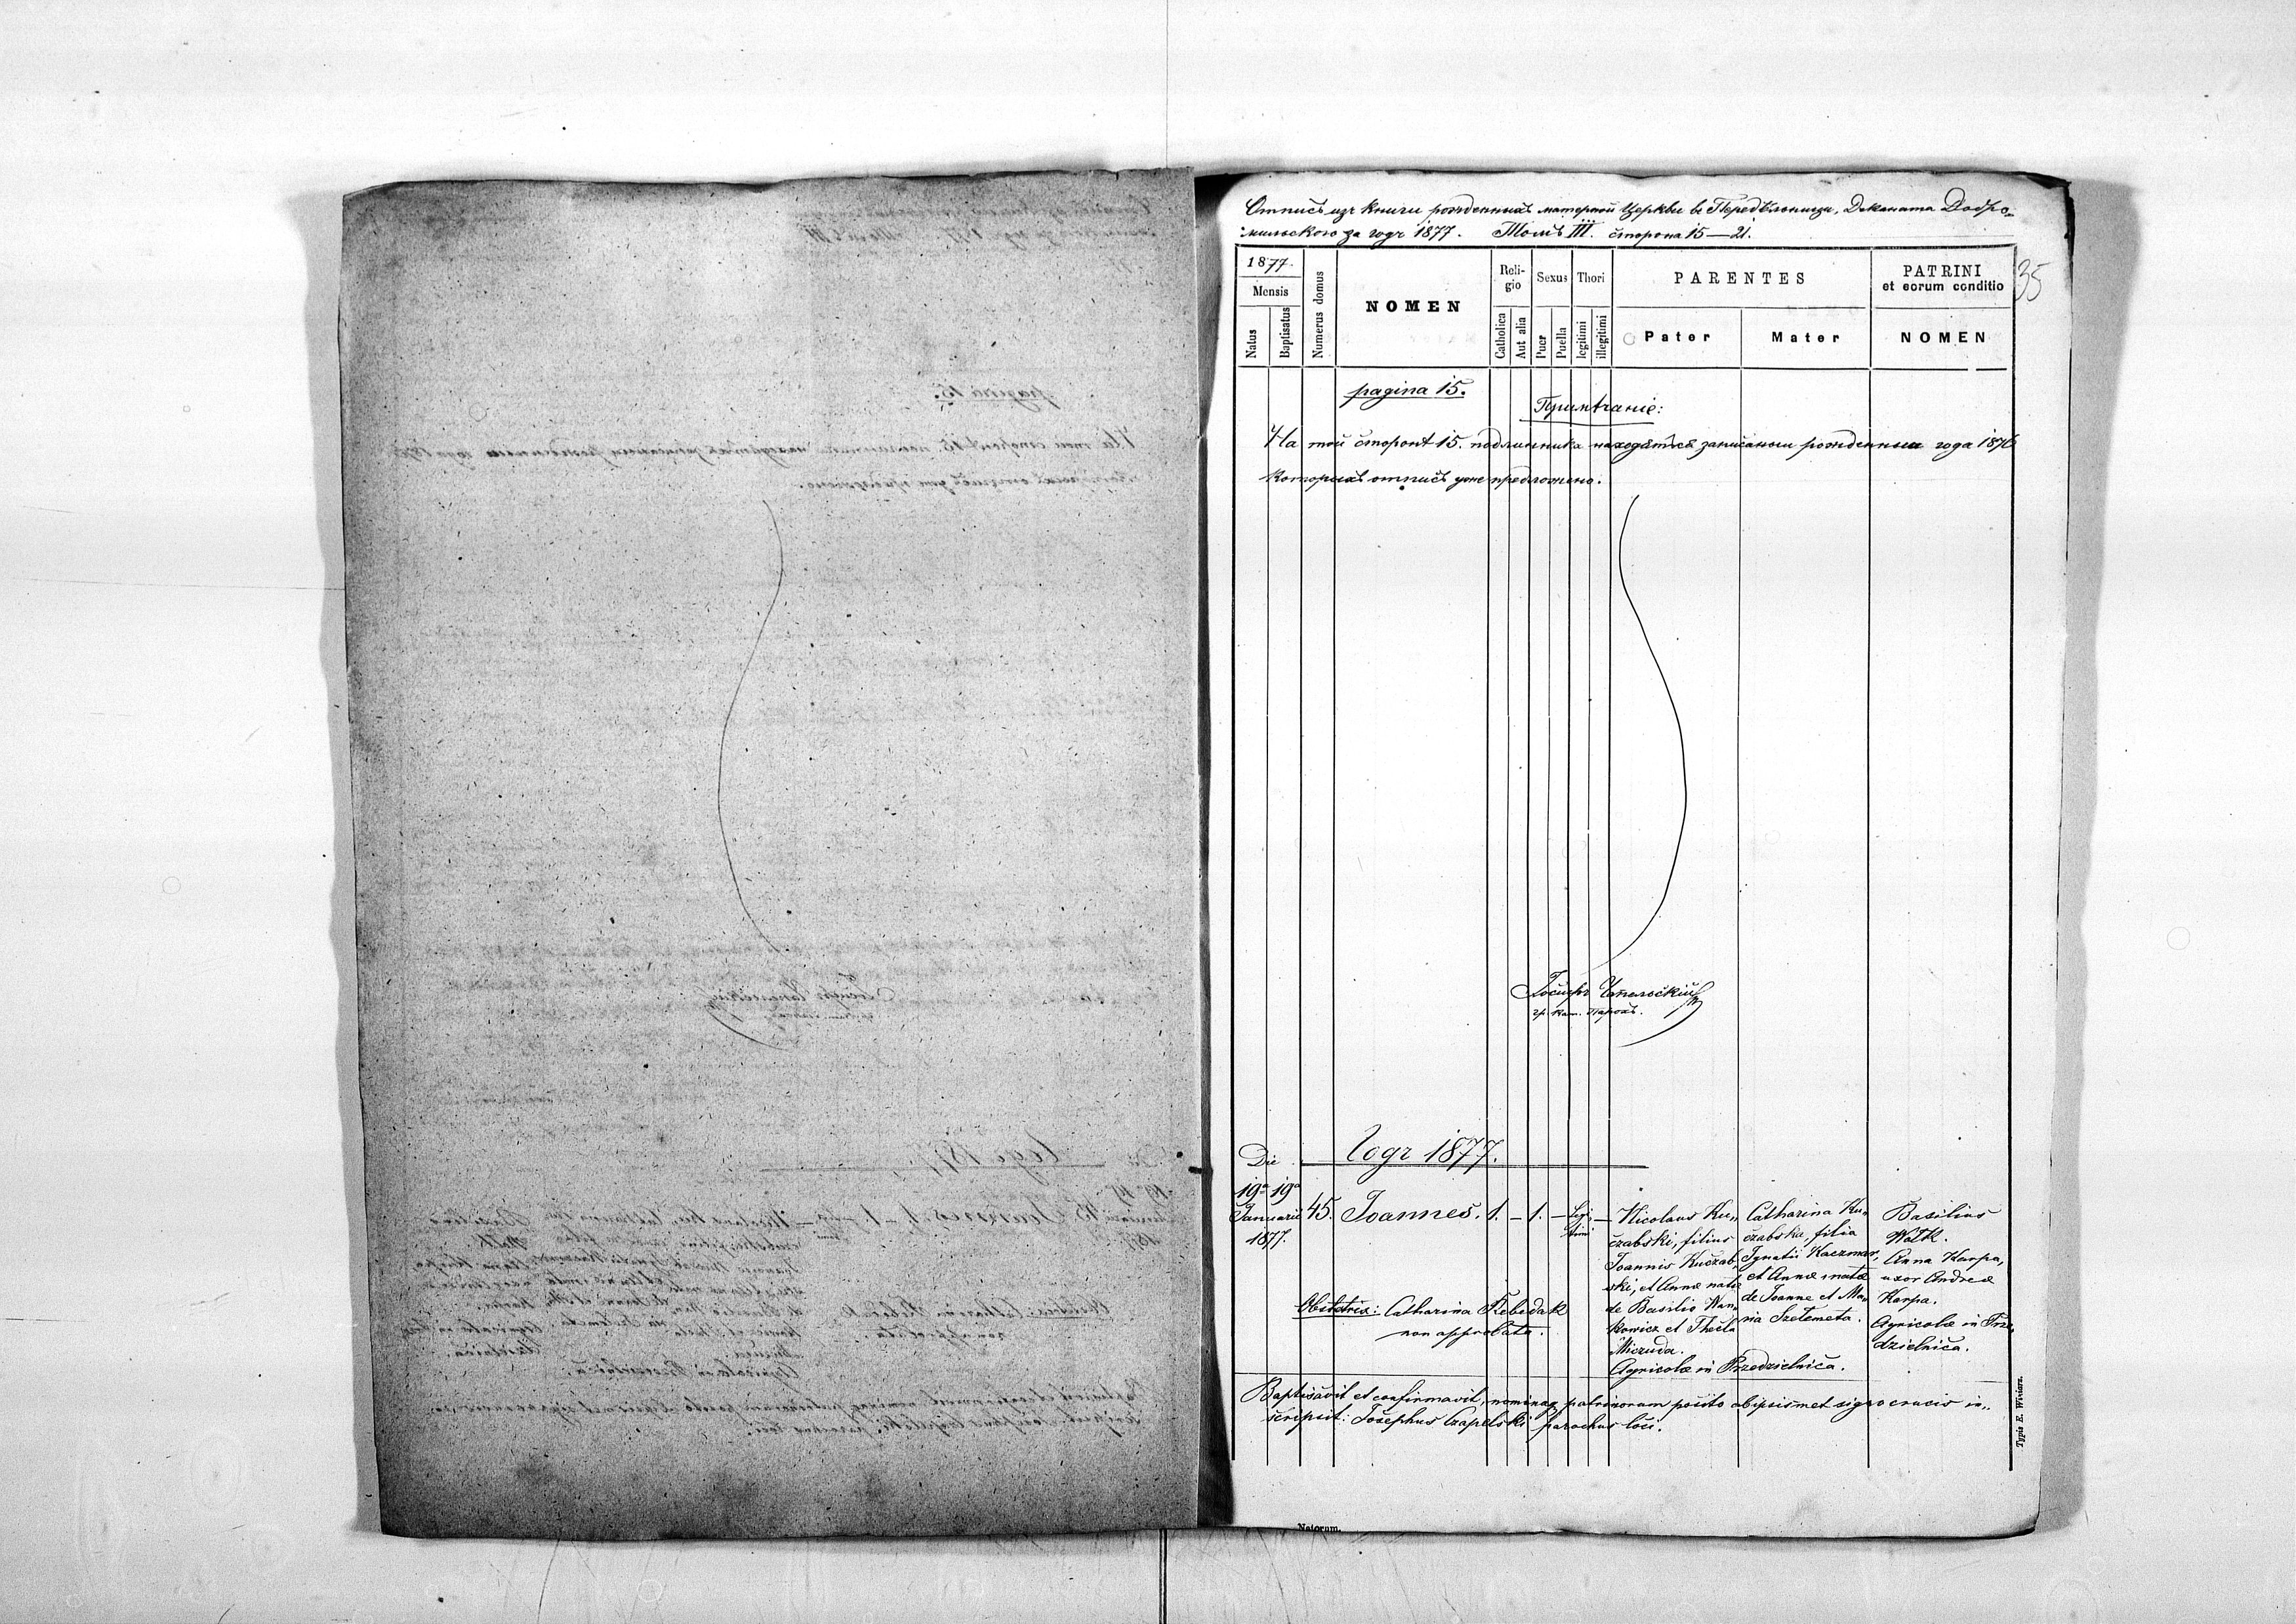 Отпись изъ книги рожденныхъ матерной Церкви въ Передѣльници, Деканата Добро-
мильского за годъ 1877. Томъ III. сторона 15—21.
35
1877.
Mensis
Natus
Baptisatus
Numerus domus
NOMEN
Reli-
gio
Catholica
Aut alia
Sexus
Puer
Puella
Thori
legitimi
illegitimi
PARENTES
Pater
Mater
PATRINI
et eorum conditio
NOMEN
pagina 15.
Примѣчаніе:
На той сторонѣ 15. подлинника находятся записаны рожденныи года 1876
которыхъ отпись уже предложено.
Іосифъ Чапельскій
гр. кат. парохъ.
Годъ 1877.
Die
19a 19a
Januarii
1877.
45.
Joannes.
1. – 1. – Legi-
timi –
Nicolaus Ku-
czabski, filius
Joannis Kuczab-
ski, et Annæ natæ
de Basilio Wan-
kowicz et Thecla
Miczuda.
Agricolæ in Przedzielnica.
Catharina Ku-
czabska, filia
Ignatii Kaczmar,
et Annæ natæ
de Joanne et Ma-
ria Szetemeta.
Basilius
Wołk.
Anna Karpa,
uxor Andreæ
Karpa.
Agricolæ in Prze-
dzielnica.
Obstetrix: Catharina Rebedak
non approbata.
Baptisavit et confirmavit, nominaq patrinorum posito abipsismet signo crucis in-
scripsit: Josephus Czapelski parochus loci.
Typis E. Winiarz.
Natorum.